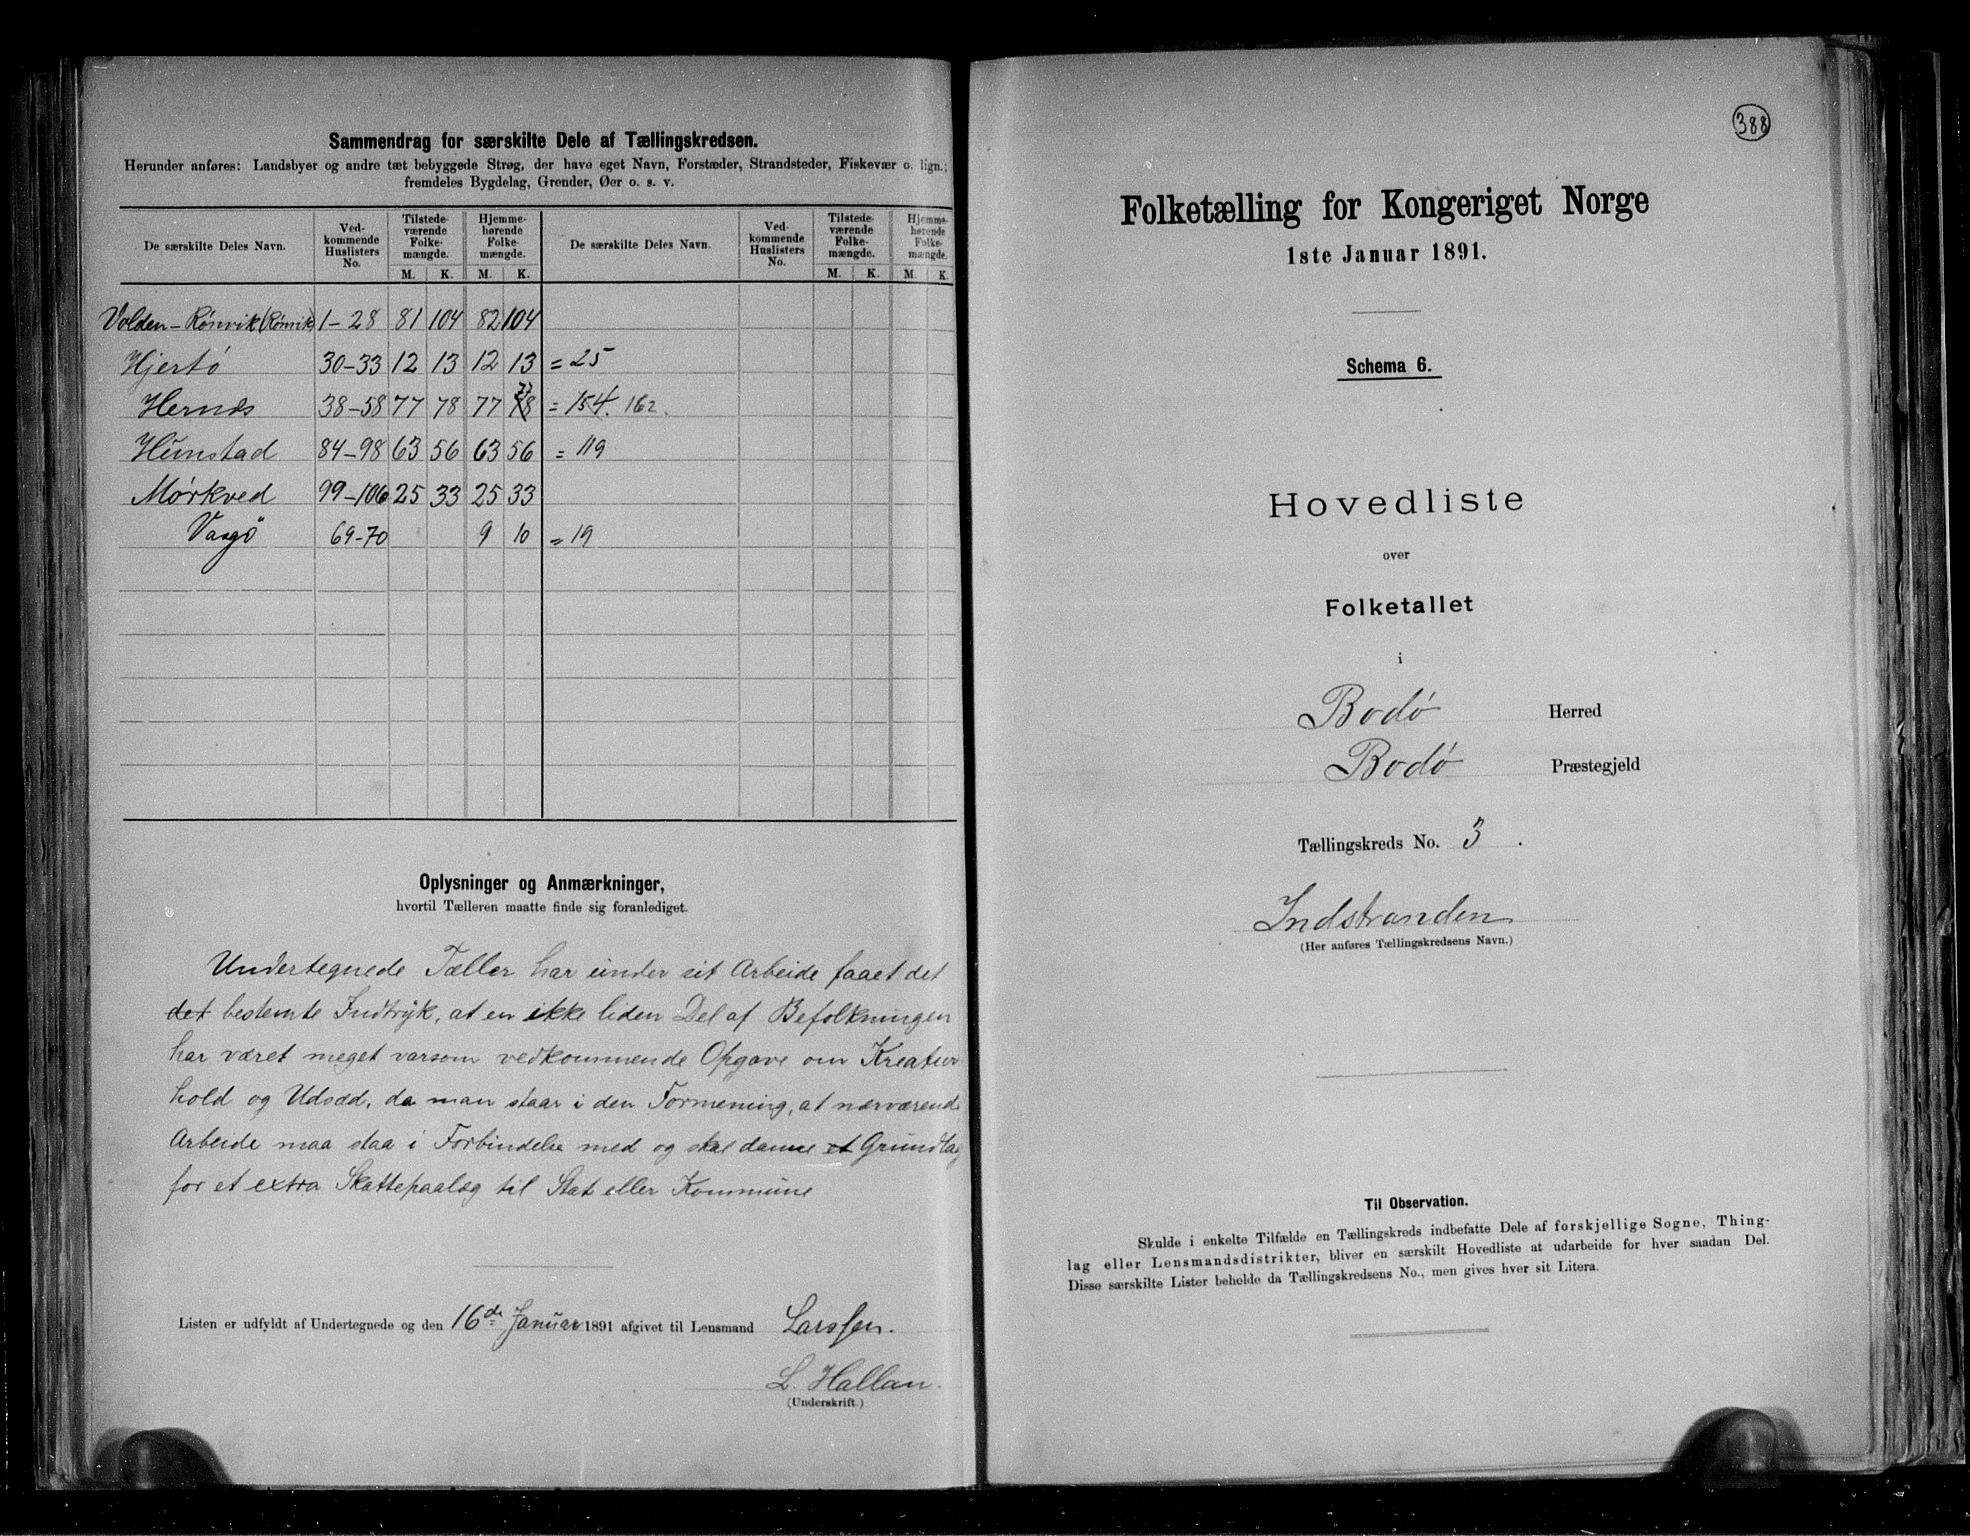 Sammendrag for særskilte Dele af Tællingskredsen.
Herunder anføres: Landsbyer og andre tæt bebyggede Strøg, der have eget Navn, Forstæder, Strandsteder, Fiskevær o. lign.;
fremdeles Bygdelag, Grender, Øer o. s. v.
De særskilte Deles Navn. Vedkommende Huslisters No. Tilstedeværende Folkemængde. Hjemmehørende Folkemængde. De særskilte Deles Navn. Vedkommende Huslisters No. Tilstedeværende Folkemængde. Hjemmehørende Folkemængde.
M. K. M. K. M. K. M. K.
Volden - Rönvik (Rönvik) 1-28 81 104 82 104
Hjertö 30-33 12 13 12 13 = 25
Hernes 38-58 77 78 77 78 77 = 154. 162.
Hunstad 84-98 63 56 63 56 = 119
Mørkved 99-106 25 33 25 33
Vaagö 69-70 9 10 = 19
Oplysninger og Anmærkninger,
hvortil Tælleren maatte finde sig foranlediget.
Undertegnede Tæller har under sit Arbeide faaet det
det bestemte Indtryk, at en ikke liden Del af Befolkningen
har været meget varsom vedkommende Opgave om Kreatur
hold og Udsæd, da man staar i den Formening, at nærværend
Arbeide maa staa i Forbindelse med og skal danne et Grundlag
for et extra Skattepaalæg til Stat eller Kommune
Listen er udfyldt af Undertegnede og den 16de Januar 1891 afgivet til Lensmand Larssen.
L. Hallan.
(Underskrift.)
388
Folketælling for Kongeriget Norge
1ste Januar 1891.
Schema 6.
Hovedliste
over
Folketallet
i
Bodø Herred
Bodø Præstegjeld
Tællingskreds No. 3.
Indstranden
(Her anføres Tællingskredsens Navn.)
Til Observation.
Skulde i enkelte Tilfælde en Tællingskreds indbefatte Dele af forskjellige Sogne, Thing-
lag eller Lensmandsdistrikter, bliver en særskilt Hovedliste at udarbeide for hver saadan Del.
Disse særskilte Lister beholde da Tællingskredsens No., men gives hver sit Litera.